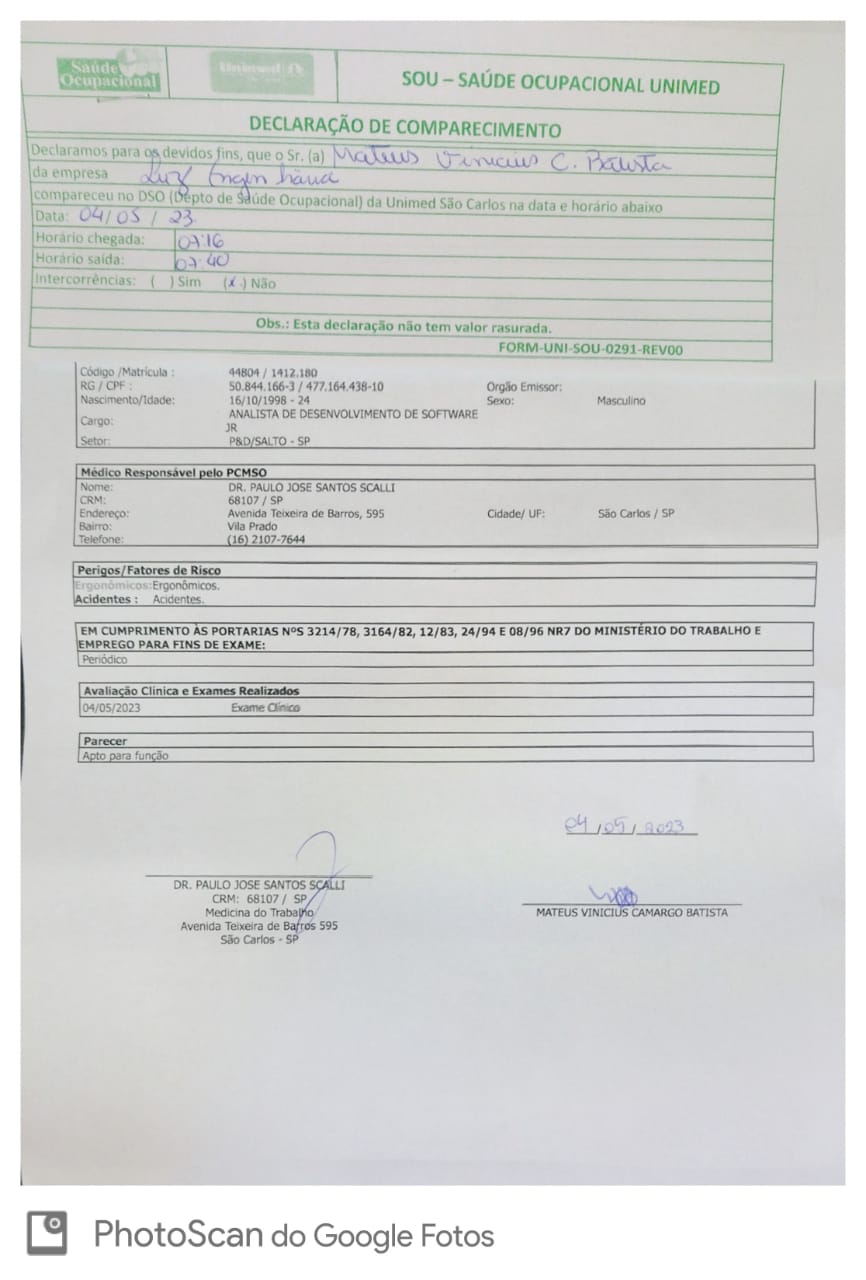 Saúde
Ocupacional
Unimed
SOU – SAÚDE OCUPACIONAL UNIMED
DECLARAÇÃO DE COMPARECIMENTO
Declaramos para os devidos fins, que o Sr. (a) Mateus Vinicius C. Batista
da empresa Luz Engenharia
compareceu no DSO (Depto de Saúde Ocupacional) da Unimed São Carlos na data e horário abaixo
Data: 04/05/23
Horário chegada: 07:16
Horário saída: 07:40
Intercorrências: ( ) Sim (x) Não
Obs.: Esta declaração não tem valor rasurada.
FORM-UNI-SOU-0291-REV00
Código /Matrícula : 44804 / 1412.180
RG / CPF : 50.844.166-3 / 477.164.438-10 Orgão Emissor:
Nascimento/Idade: 16/10/1998 - 24 Sexo: Masculino
Cargo: ANALISTA DE DESENVOLVIMENTO DE SOFTWARE
JR
Setor: P&D/SALTO - SP
Médico Responsável pelo PCMSO
Nome: DR. PAULO JOSE SANTOS SCALLI
CRM: 68107 / SP
Endereço: Avenida Teixeira de Barros, 595 Cidade/ UF: São Carlos / SP
Bairro: Vila Prado
Telefone: (16) 2107-7644
Perigos/Fatores de Risco
Ergonômicos:Ergonômicos.
Acidentes : Acidentes.
EM CUMPRIMENTO ÀS PORTARIAS NºS 3214/78, 3164/82, 12/83, 24/94 E 08/96 NR7 DO MINISTÉRIO DO TRABALHO E
EMPREGO PARA FINS DE EXAME:
Periódico
Avaliação Clínica e Exames Realizados
04/05/2023 Exame Clínico
Parecer
Apto para função
04/05/2023
DR. PAULO JOSE SANTOS SCALLI
CRM: 68107 / SP
Medicina do Trabalho
Avenida Teixeira de Barros 595
São Carlos - SP
MATEUS VINICIUS CAMARGO BATISTA
PhotoScan do Google Fotos